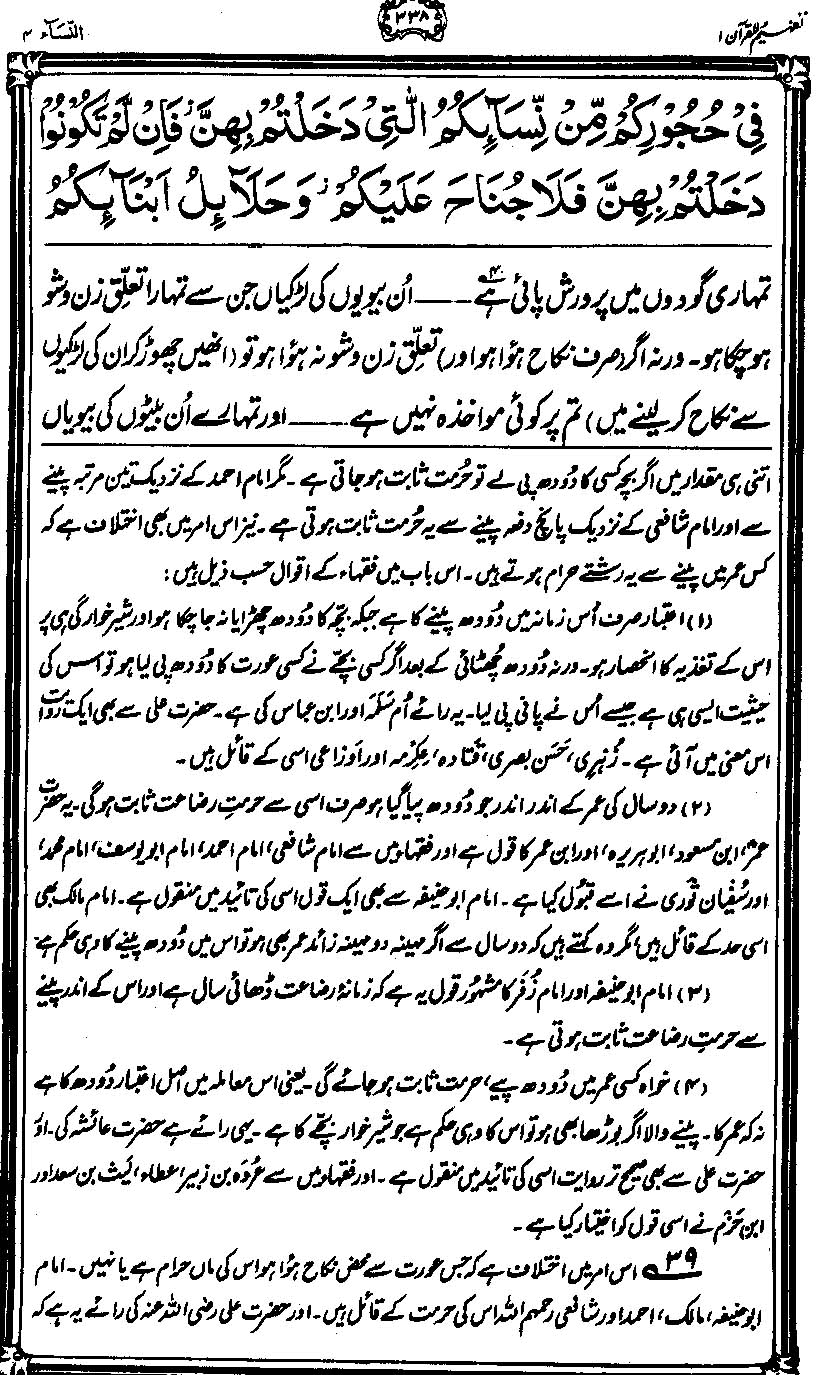 تفہیم القرآن ۱
۳۳۸
النّسآء ۴
فِیْ حُجُوْرِكُمْ مِّنْ نِّسَآىِٕكُمُ الّٰتِیْ دَخَلْتُمْ بِهِنَّ ؗ فَاِنْ لَّمْ تَكُوْنُوْا
دَخَلْتُمْ بِهِنَّ فَلَا جُنَاحَ عَلَیْكُمْ ؗ وَ حَلَآىِٕلُ اَبْنَآىِٕكُمُ
تمہاری گودوں میں پرورش پائی ہے ۴۰ــــــ اُن بیویوں کی لڑکیاں جن سے تمہارا تعلّق زن و شو
ہو چکا ہو۔ ورنہ اگر (صرف نکاح ہوٴا ہو اور) تعلّق زن و شو نہ ہوٴا ہو تو (انھیں چھوڑ کر ان کی لڑکیوں
سے نکاح کر لینے میں) تم پر کوئی مواخذہ نہیں ہے ــــــ اور تمہارے اُن بیٹوں کی بیویاں
اتنی ہی مقدار میں اگر بچہ کسی کا دُودھ پی لے تو حُرمت ثابت ہو جاتی ہے۔ مگر امام احمد کے نزدیک تین مرتبہ پینے
سے اور امام شافعی کے نزدیک پانچ دفعہ پینے سے یہ حُرمت ثابت ہوتی ہے۔ نیز اس امر میں بھی اختلاف ہے کہ
کس عمر میں پینے سے یہ رشتے حرام ہوتے ہیں۔ اس باب میں فقہاء کے اقوال حسب ذیل ہیں:
(۱) اعتبار صرف اُس زمانہ میں دُودھ پینے کا ہے جبکہ بچّہ کا دُودھ چھڑایا نہ جا چکا ہو اور شیر خوارگی ہی پر
اس کے تغذیہ کا انحصار ہو۔ ورنہ دُودھ چُھٹائی کے بعد اگر کسی بچّے نے کسی عورت کا دُودھ پی لیا ہو تو اس کی
حیثیت ایسی ہی ہے جیسے اُس نے پانی پی لیا۔ یہ رائے اُم سَلَمَہ اور ابن عباس کی ہے۔ حضرت علی سے بھی ایک روایت
اس معنی میں آئی ہے۔ زُہْرِی، حَسَن بصری، قَتَادہ، عِکْرِمہ اور اَوزاعی اسی کے قائل ہیں۔
(۲) دو سال کی عمر کے اندر اندر جو دُودھ پیا گیا ہو صرف اسی سے حرمتِ رضاعت ثابت ہوگی۔ یہ حضرت
عمرؓ، ابن مسعود، ابو ہریرہ، اور ابن عمر کا قول ہے اور فقہاء میں سے امام شافعی، امام احمد، امام ابو یوسف، امام محمد،
اور سُفیان ثَوری نے اسے قبُول کیا ہے۔ امام ابو حنیفہ سے بھی ایک قول اسی کی تائید میں منقول ہے۔ امام مالک بھی
اسی حد کے قائل ہیں، مگر وہ کہتے ہیں کہ دو سال سے اگر مہینہ دو مہینہ زائد عمر بھی ہو تو اس میں دُودھ پینے کا وہی حکم ہے۔
(۳) امام ابو حنیفہ اور امام زُفَر کا مشہُور قول یہ ہے کہ زمانۂ رضاعت ڈھائی سال ہے اور اس کے اندر پینے
سے حرمتِ رضاعت ثابت ہوتی ہے۔
(۴) خواہ کسی عمر میں دُودھ پیے، حرمت ثابت ہو جائے گی۔ یعنی اس معاملہ میں اصل اعتبار دُودھ کا ہے
نہ کہ عمر کا۔ پینے والا اگر بوڑھا بھی ہو تو اس کا وہی حکم ہے جو شیر خوار بچّے کا ہے۔ یہی رائے ہے حضرت عائشہ کی۔ اور
حضرت علی سے بھی صحیح تر روایت اسی کی تائید میں منقول ہے۔ اور فقہاء میں سے عُروَہ بن زبیر، عطاء، لَیث بن سعد اور
ابن حَزْم نے اسی قول کو اختیار کیا ہے۔
۳۹ اس امر میں اختلاف ہے کہ جس عورت سے محض نکاح ہوٴا ہو اس کی ماں حرام ہے یا نہیں۔ امام
ابو حنیفہ، مالک، احمد اور شافعی رحمہم اللہ اس کی حرمت کے قائل ہیں۔ اور حضرت علی رضی اللہ عنہ کی رائے یہ ہے کہ